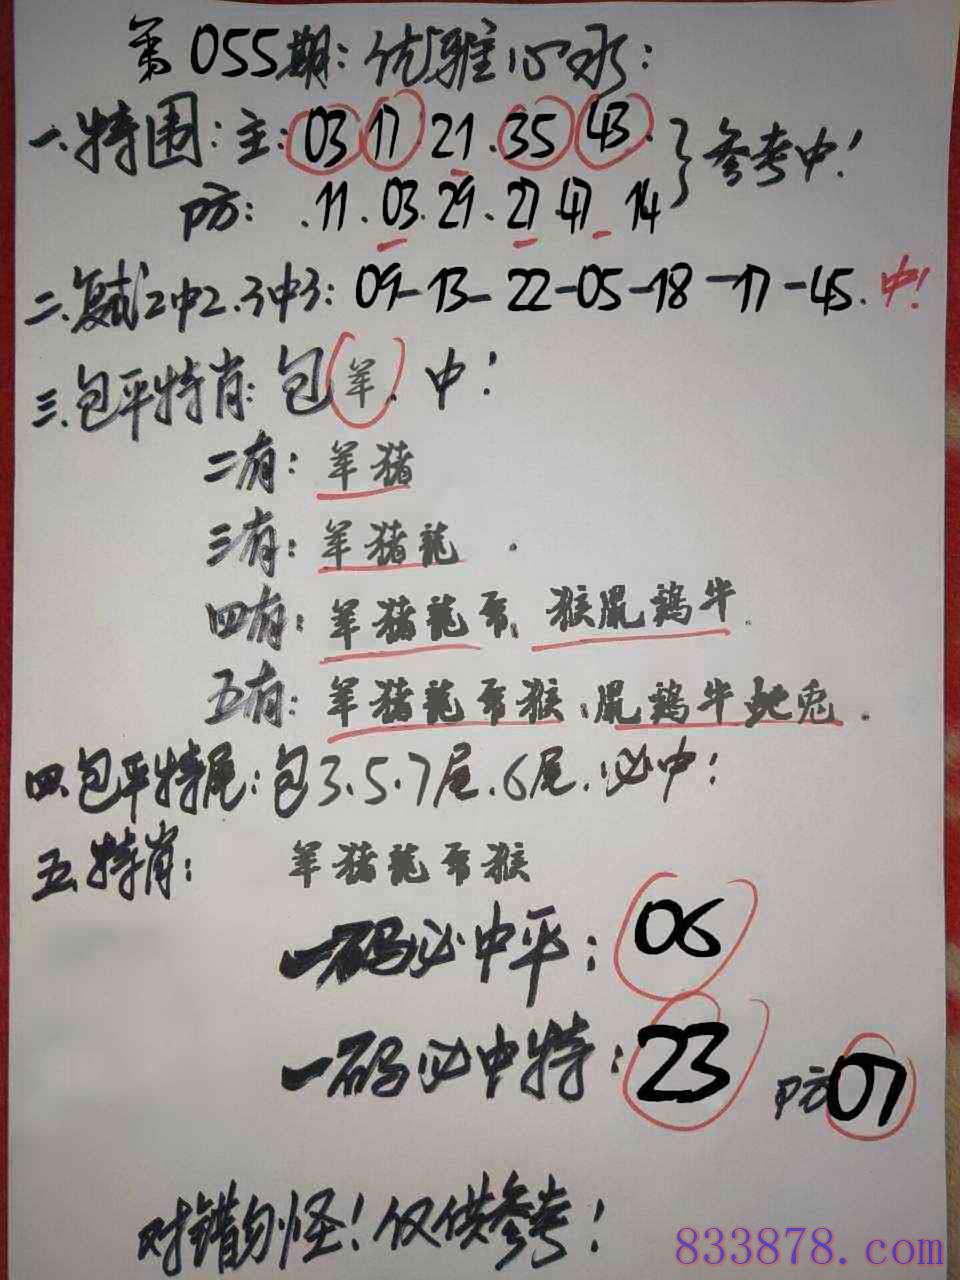 第055期：优雅心水：
一.特围：主：03 17 21.35 43.
参考中！
防：.11.03.29.27.47 14
二.复式2中2.3中3：09-13-22-05-18-17-45.中！
三.包平特肖：包羊.中！
二有：羊猪
三有：羊猪龍.
四有：羊猪龍马.猴鼠鷄牛.
五有：羊猪龍马猴.鼠鷄牛蛇兔.
四.包平特尾：包3.5.7尾.6尾.必中！
五.特肖：羊猪龍马猴
一码必中平：06
一码必中特：23 防07
对错勿怪！仅供参考！
833878.com